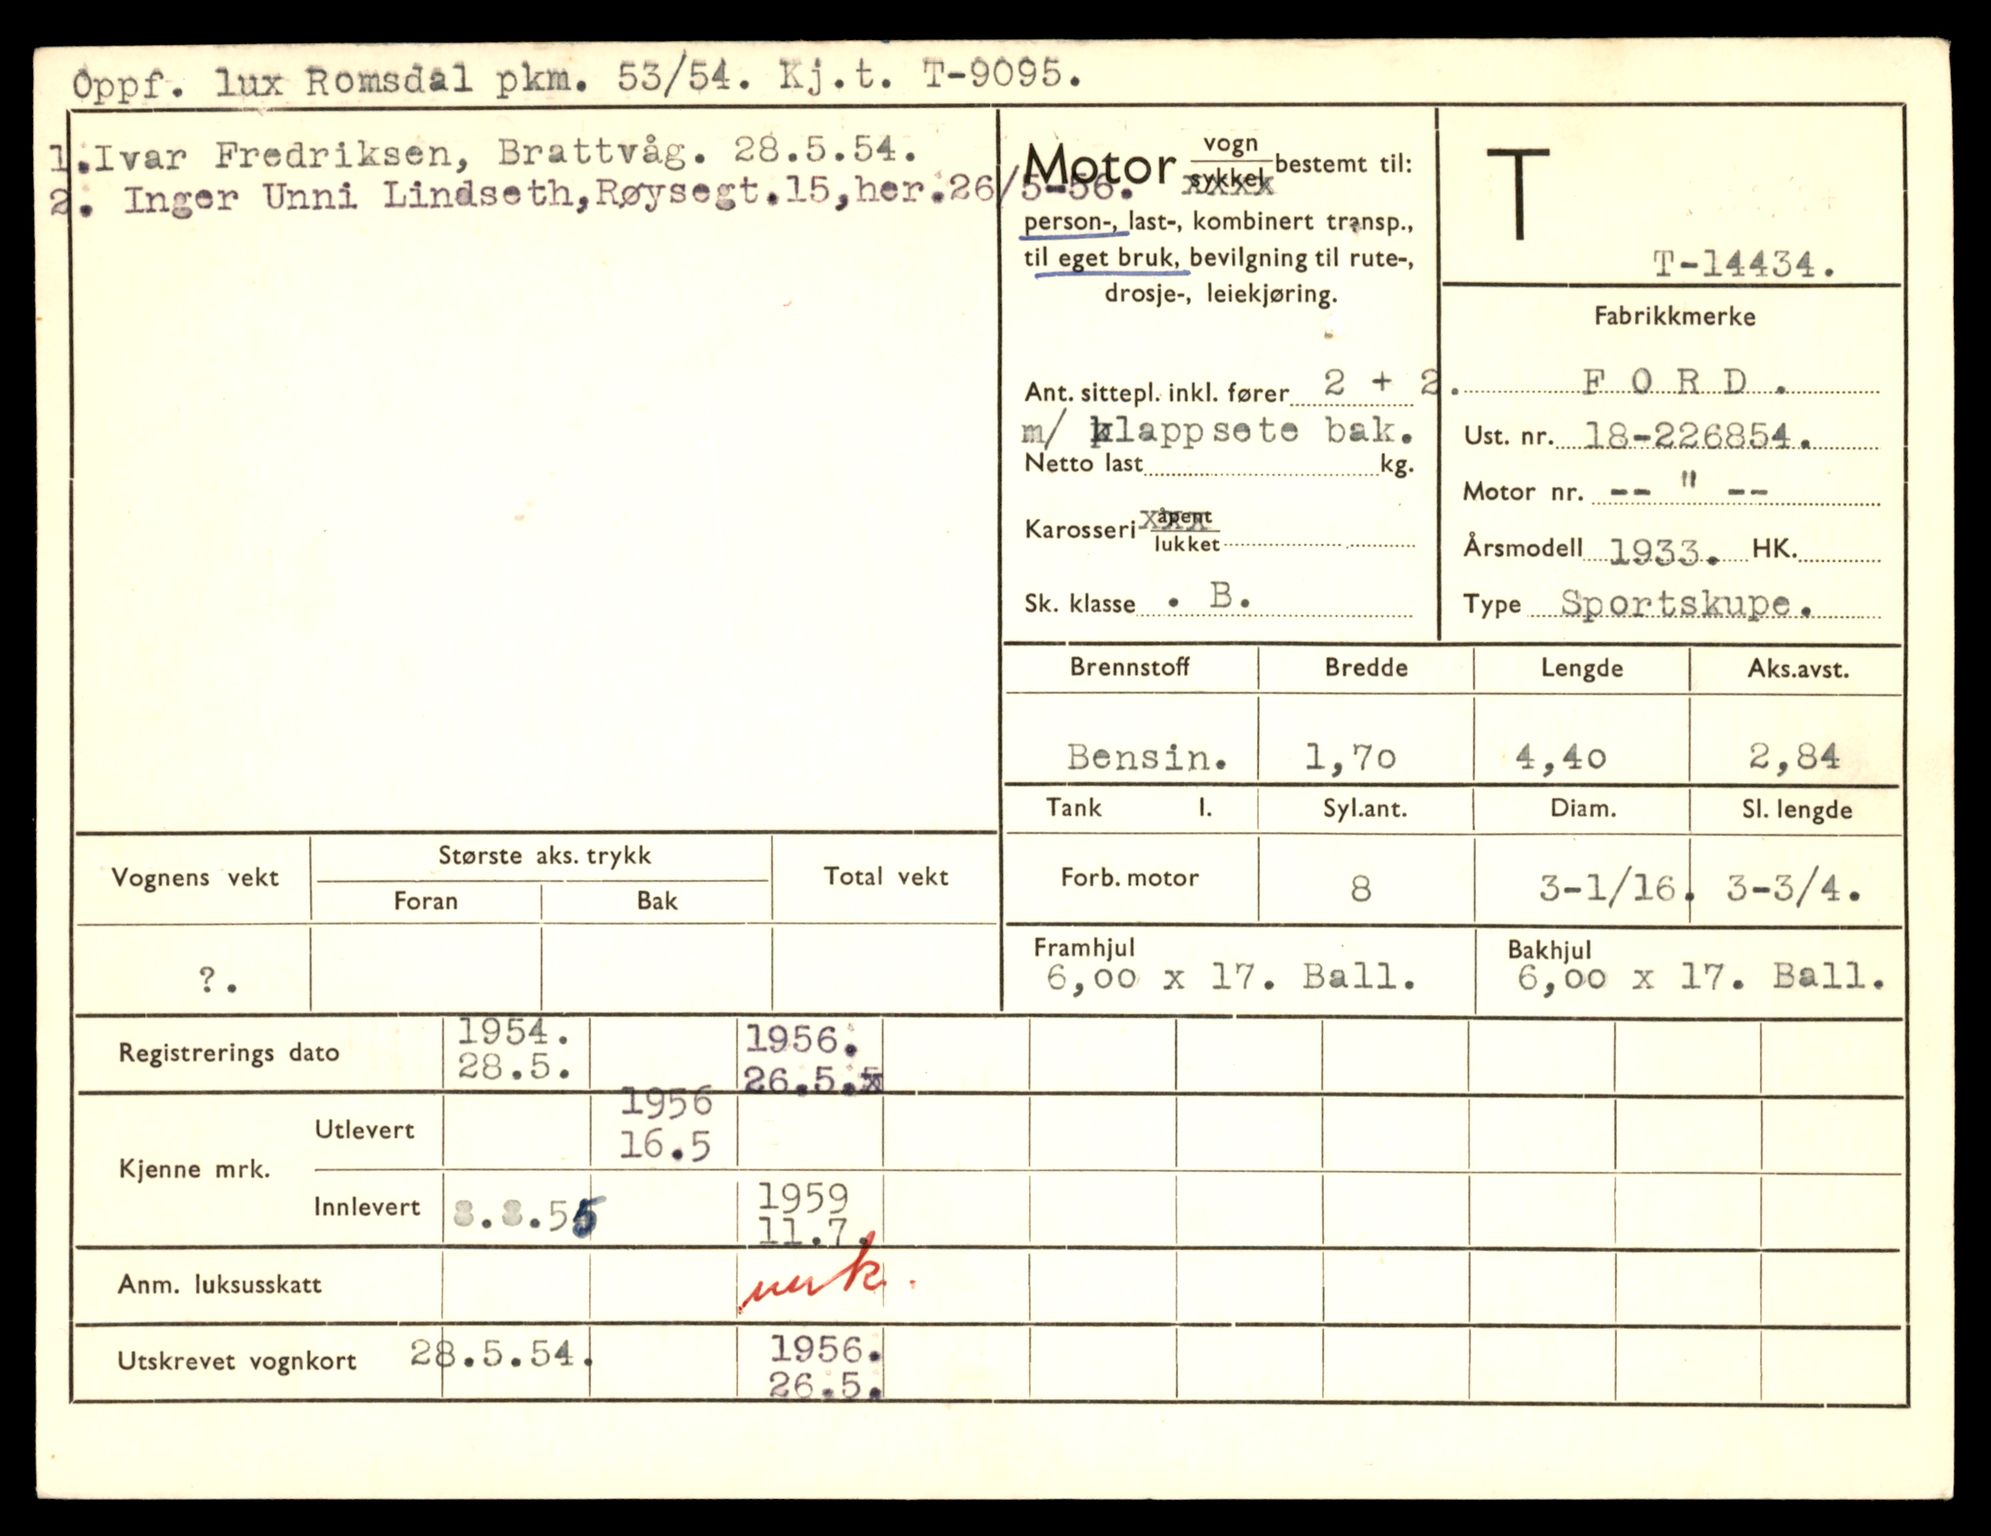 Oppf. lux Romsdal pkm. 53/54. Kj.t. T-9095.
1.Ivar Fredriksen, Brattvåg. 28.5.54.
2. Inger Unni Lindseth,Røysegt.15,her.26/5-56.
Motor vogn sykkel bestemt til:
xxxx
person-, last-, kombinert transp.,
til eget bruk, bevilgning til rute-,
drosje-, leiekjøring.
Ant. sittepl. inkl. fører 2 + 2.
m/ klappsete bak.
Netto last kg.
Karosseri åpent lukket
xxx
Sk. klasse . B.
T
T-14434.
Fabrikkmerke
F O R D .
Ust. nr. 18-226854.
Motor nr. -- " --
Årsmodell 1933. HK.
Type Sportskupe.
Brennstoff Bredde Lengde Aks.avst.
Bensin. 1,70 4,40 2,84
Tank l. Syl.ant. Diam. Sl. lengde
Forb. motor 8 3-1/16. 3-3/4.
Framhjul Bakhjul
6,00 x 17. Ball. 6,00 x 17. Ball.
Vognens vekt Største aks. trykk Total vekt
Foran Bak
?.
Registrerings dato 1954. 28.5. 1956. 26.5.
Kjenne mrk.
Utlevert 1956 16.5
Innlevert 8.8.55 1959 11.7.
Anm. luksusskatt
Utskrevet vognkort 28.5.54. 1956. 26.5.